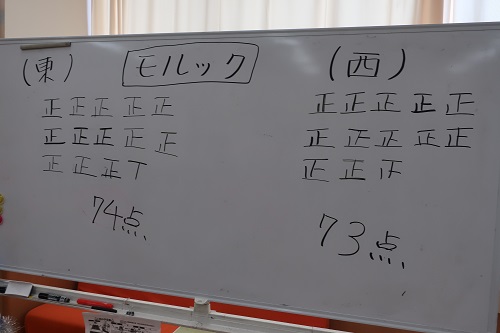 (東) モルック (西)
正正正正正
正正正正正
正正正丅
74点
正正正正正
正正正正正
正正下
73点